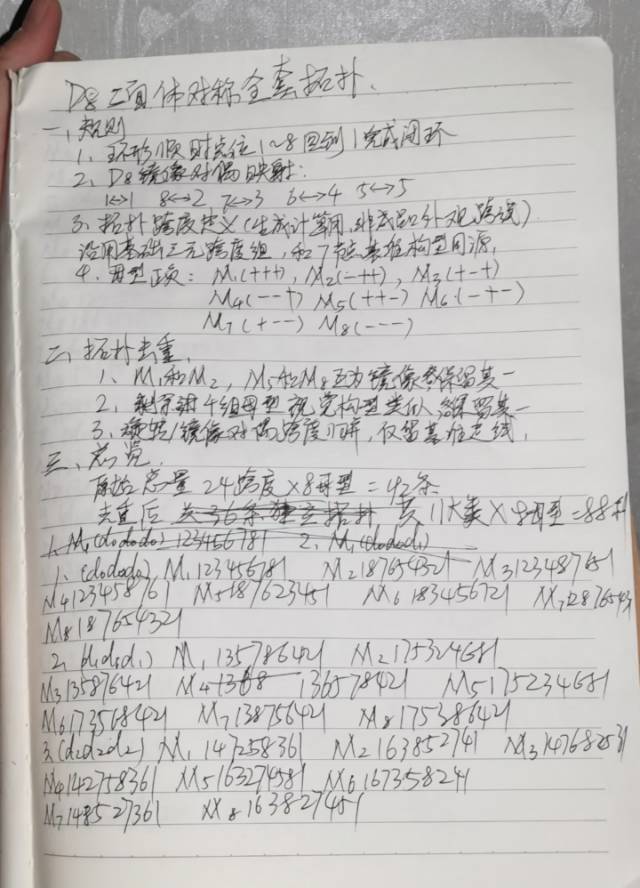 D8二面体对称全套拓扑.
一、规则
1、环形顺时点位1~8回到1完成闭环
2、D8镜像对偶映射:
1↔1 8↔2 7↔3 6↔4 5↔5
3、拓扑跨度定义(生成计算用,非成品外观跨线)
沿用基础三元跨度组,和7点基准构型同源.
4、母型正负: M1(+++), M2(-++), M3(+-+)
M4(--+) M5(++-) M6(-+-)
M7(+--) M8(---)
二、拓扑去重.
1、M1和M2, M5和M8互为镜像保留其一
2、剩余4组母型视觉构型类似 保留其一
3、旋转/镜像对偶跨度归并,仅留基准走线.
三、总览.
原始总量24跨度×8母型=192条
去重后 共36条独立拓扑 共11大类×8母型=88
1、M1(d0d0d0) 123456781 2、M1(d0d0d1)
1、(d0d0d0) M1 123456781 M2 187654321 M3 123487651
M4 123458761 M5 187623451 M6 183456721 M7 128765431
M8 187654321
2、(d1d1d1) M1 135786421 M2 175324681
M3 135876421 M4 1368 136578421 M5 175234681
M6 173568421 M7 138756421 M8 175386421
3、(d2d2d2) M1 147258361 M2 163852741 M3 147682531
M4 142758361 M5 163274581 M6 167358241
M7 148527361 M8 163827451